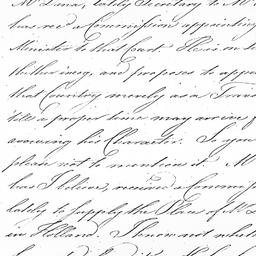 Mr Dana, lately Secretary to Mr
has recd a Commission appointing
Minister to that Court. He is on
thither incog, and proposes to appear
that Country merely as a Trav
till a proper time may arrive f
avowing his Character. So you
please not to mention it. M
has I believe, received a Commis
lately to supply the Place of Mr L
in Holland. I know not whet